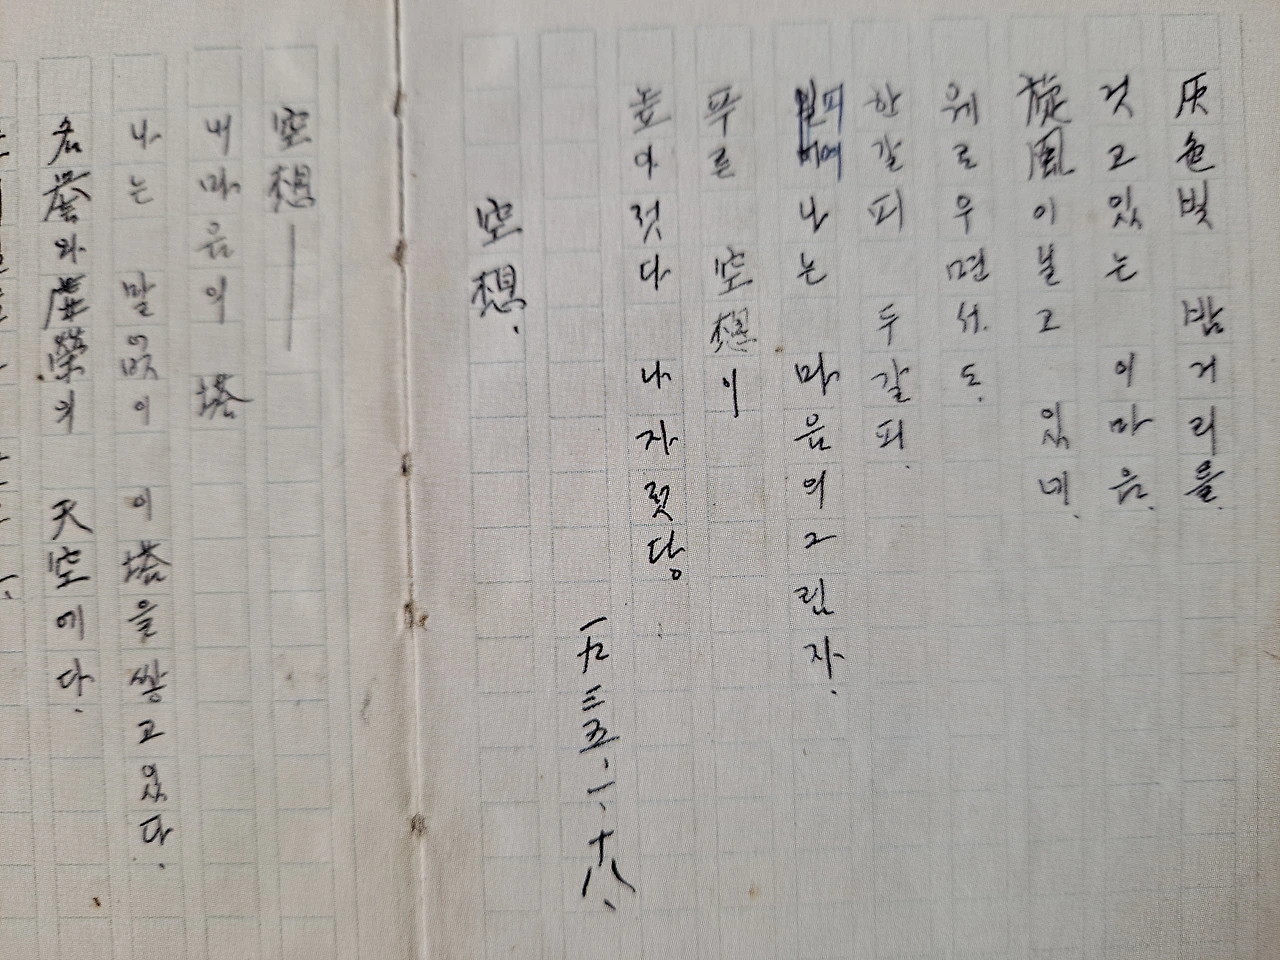 灰色빛 밤거리를.
것고있는 이마음.
旋風이닐고 있네.
웨로우면서도.
한갈피 두갈피.
피여나는 마음의그림자.
푸른 空想이
높아젓다 나자젓당
一九三五、一、十八、
空想.
空想——
내마음의 塔
나는 말없이 이塔을쌓고있다.
名譽와虛榮의 天空에다.